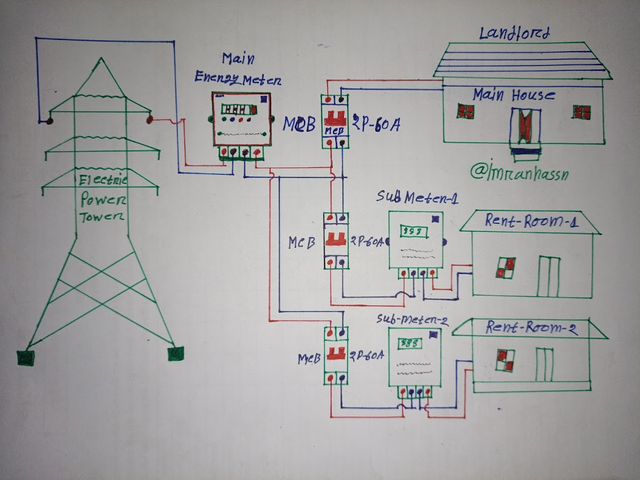 Landlord
Main
Energy Meter
Main House
MCB
MCB
2P-60A
@imranhassn
Electric
Power
Tower
Sub Meter-1
Rent-Room-1
MCB
2P-60A
Sub-meter-2
Rent-Room-2
MCB
2P-60A